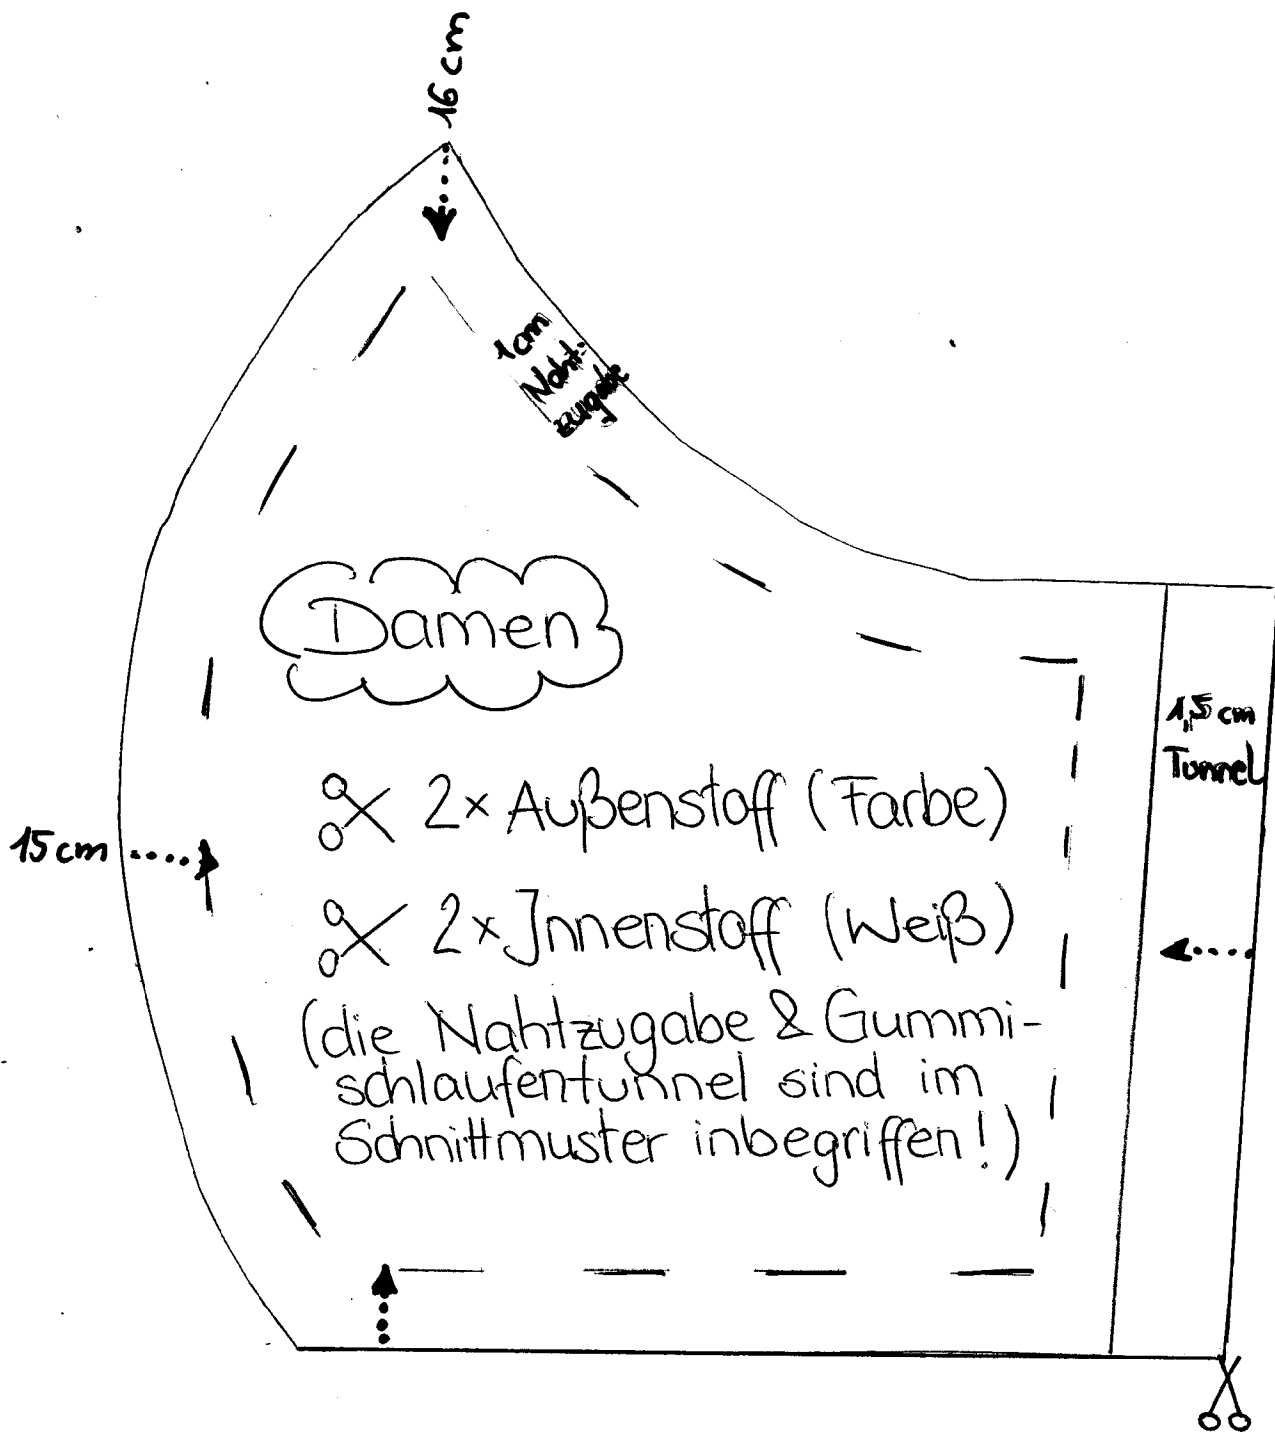 16 cm
1cm
Naht-
zugabe
Damen
1,5 cm
Tunnel
2x Außenstoff (Farbe)
15 cm
2x Innenstoff (Weiß)
(die Nahtzugabe & Gummi-
schlaufentunnel sind im
Schnittmuster inbegriffen!)